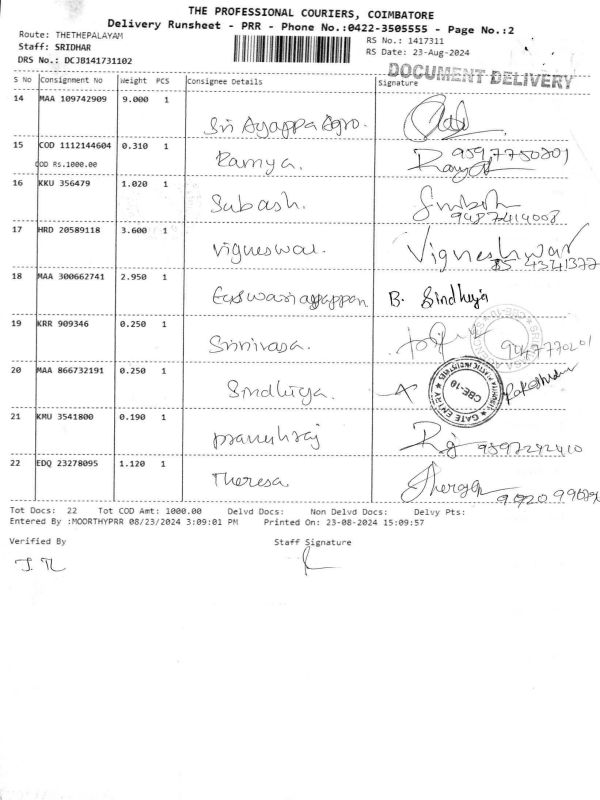 THE PROFESSIONAL COURIERS, COIMBATORE
Delivery Runsheet - PRR - Phone No.:0422-3505555 - Page No.:2
Route: THETHEPALAYAM
RS No.: 1417311
Staff: SRIDHAR
RS Date: 23-Aug-2024
DRS No.: DCJB141731102
DOCUMENT DELIVERY
S No Consignment No Weight PCS Consignee Details Signature
14 MAA 109742909 9.000 1 Sri Ayappa Agro.
15 COD 1112144604 0.310 1 Ramya. 9597750801
COD Rs.1000.00 Ramya
16 KKU 356479 1.020 1 Subash. Subash
9487414008
17 HRD 20589118 3.600 1 Vigneswar. Vigneshwar
18 MAA 300662741 2.950 1 B. Sindhuja
19 KRR 909346 0.250 1 Srinivasa.
20 MAA 866732191 0.250 1 Sindhuja.
GATE ENTRY
CBE-10
21 KMU 3541800 0.190 1 9597242410
22 EDQ 23278095 1.120 1 Theresa
Tot Docs: 22 Tot COD Amt: 1000.00 Delvd Docs: Non Delvd Docs: Delvy Pts:
Entered By :MOORTHYPRR 08/23/2024 3:09:01 PM Printed On: 23-08-2024 15:09:57
Verified By Staff Signature